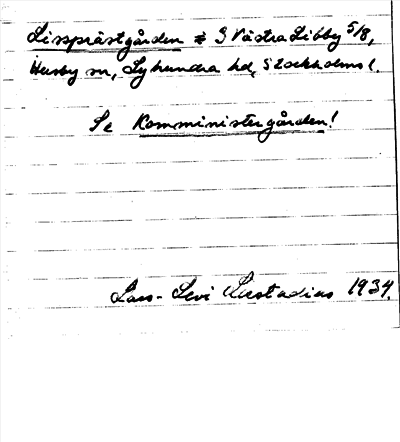 Lissprästgården ≠ 3 Västra Libby 5/8,
Husby sn, Lyhundra hd, Stockholms l.
Se Komministergården!
Lars-Levi Læstadius 1934.